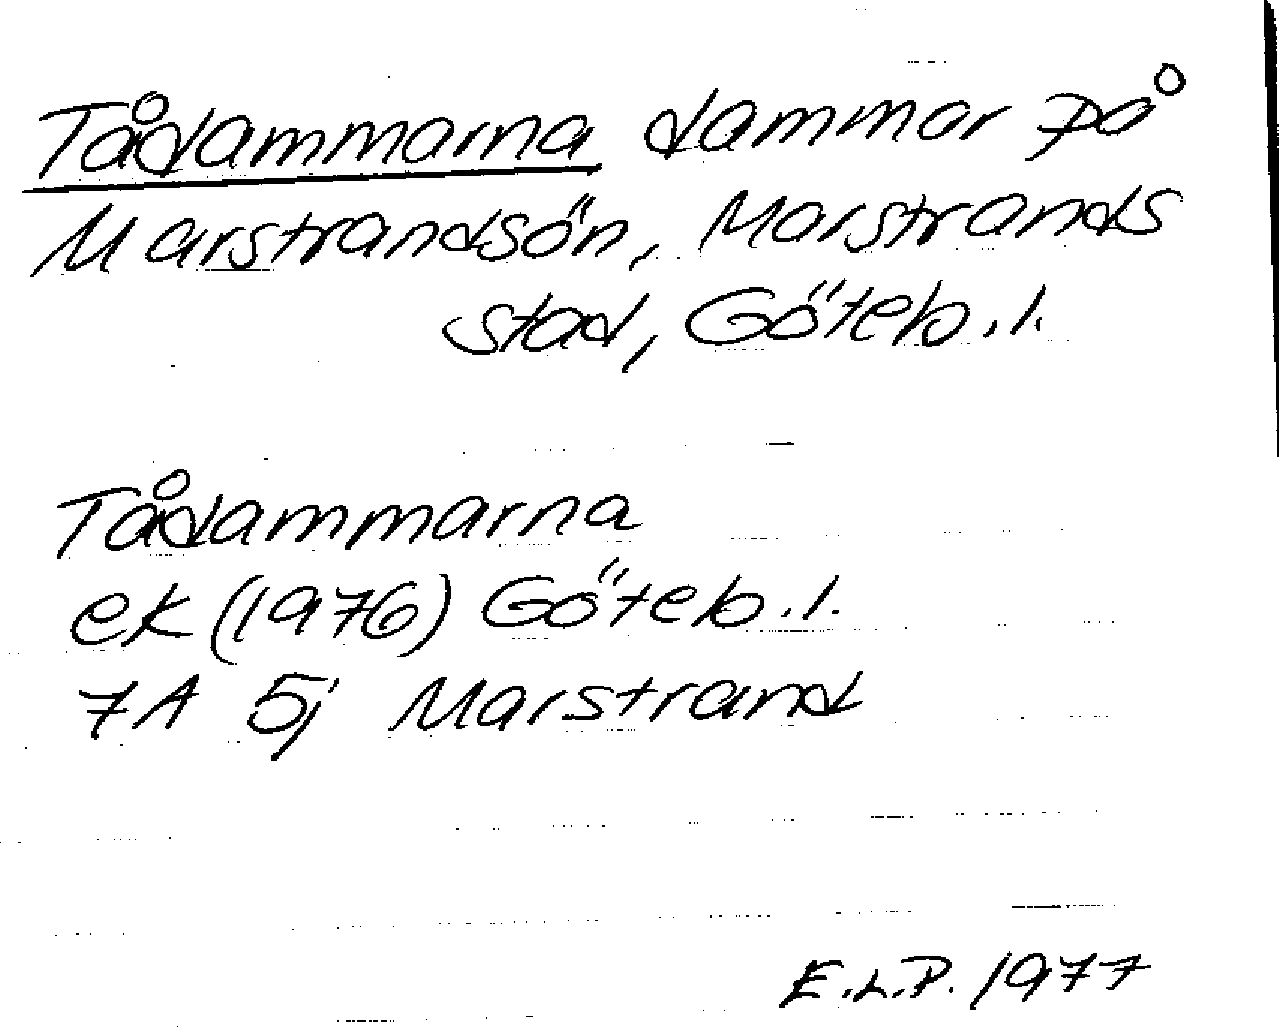 Tådammarna dammar på
Marstrandsön, Marstrands
stad, Göteb. l.
Tådammarna
ek (1976) Göteb. l.
7A 5j Marstrand
E.L.P. 1977